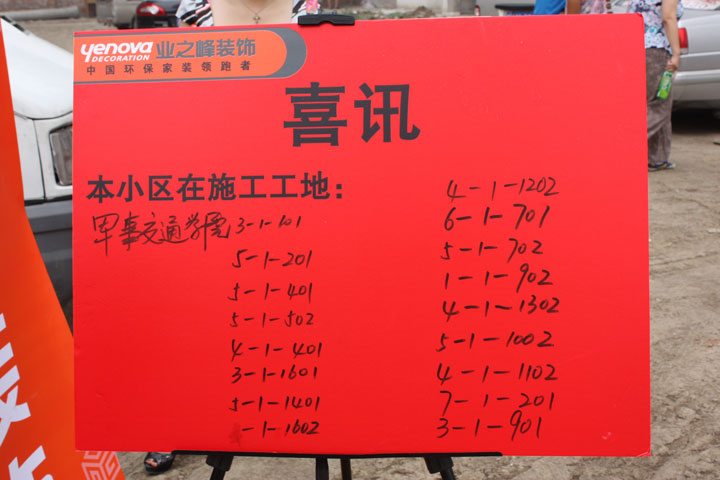 yenova
DECORATION
业之峰装饰
中国环保家装领跑者
喜讯
本小区在施工工地：
军事交通学院 3-1-101
5-1-201
5-1-401
5-1-502
4-1-401
3-1-1601
5-1-1401
-1-1602
4-1-1202
6-1-701
5-1-702
1-1-902
4-1-1302
5-1-1002
4-1-1102
7-1-201
3-1-901